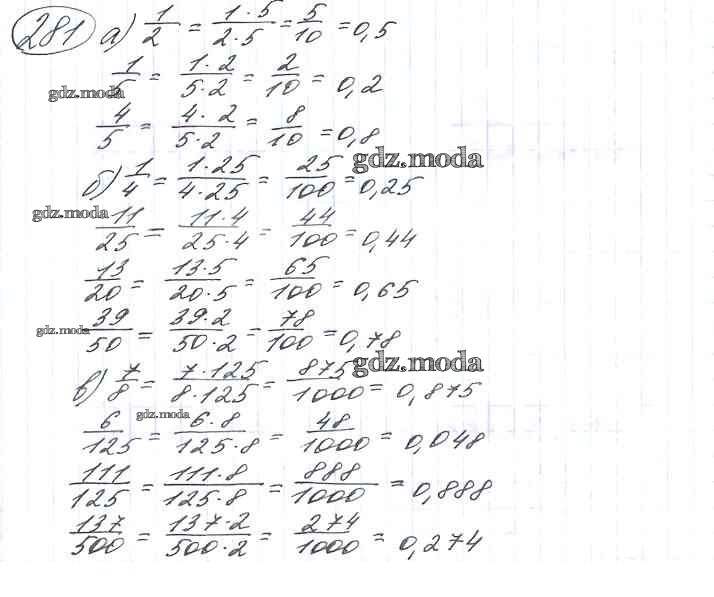 281 а) 1/2 = 1·5/2·5 = 5/10 = 0,5
1/5 = 1·2/5·2 = 2/10 = 0,2
gdz.moda
4/5 = 4·2/5·2 = 8/10 = 0,8
gdz.moda
б) 1/4 = 1·25/4·25 = 25/100 = 0,25
gdz.moda
11/25 = 11·4/25·4 = 44/100 = 0,44
13/20 = 13·5/20·5 = 65/100 = 0,65
gdz.moda
39/50 = 39·2/50·2 = 78/100 = 0,78
gdz.moda
в) 7/8 = 7·125/8·125 = 875/1000 = 0,875
gdz.moda
6/125 = 6·8/125·8 = 48/1000 = 0,048
111/125 = 111·8/125·8 = 888/1000 = 0,888
137/500 = 137·2/500·2 = 274/1000 = 0,274